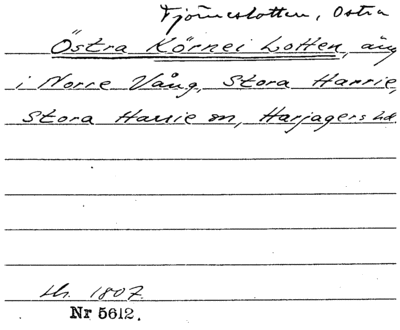 Tjörneslotten, Östra
Östra Körnei Lotten, äng
i Norre Vång, Stora Harrie,
Stora Harrie sn, Harjagers hd.
lh. 1807.
Nr 5612.